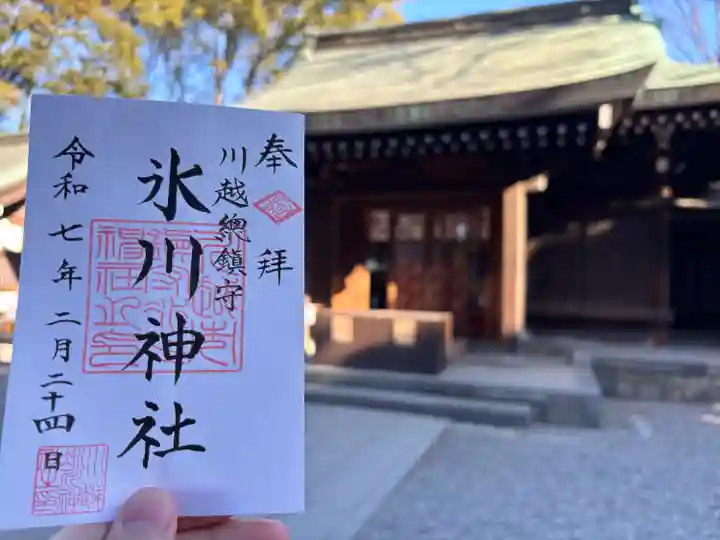 奉拝
川越總鎮守
氷川神社
令和七年二月二十四日